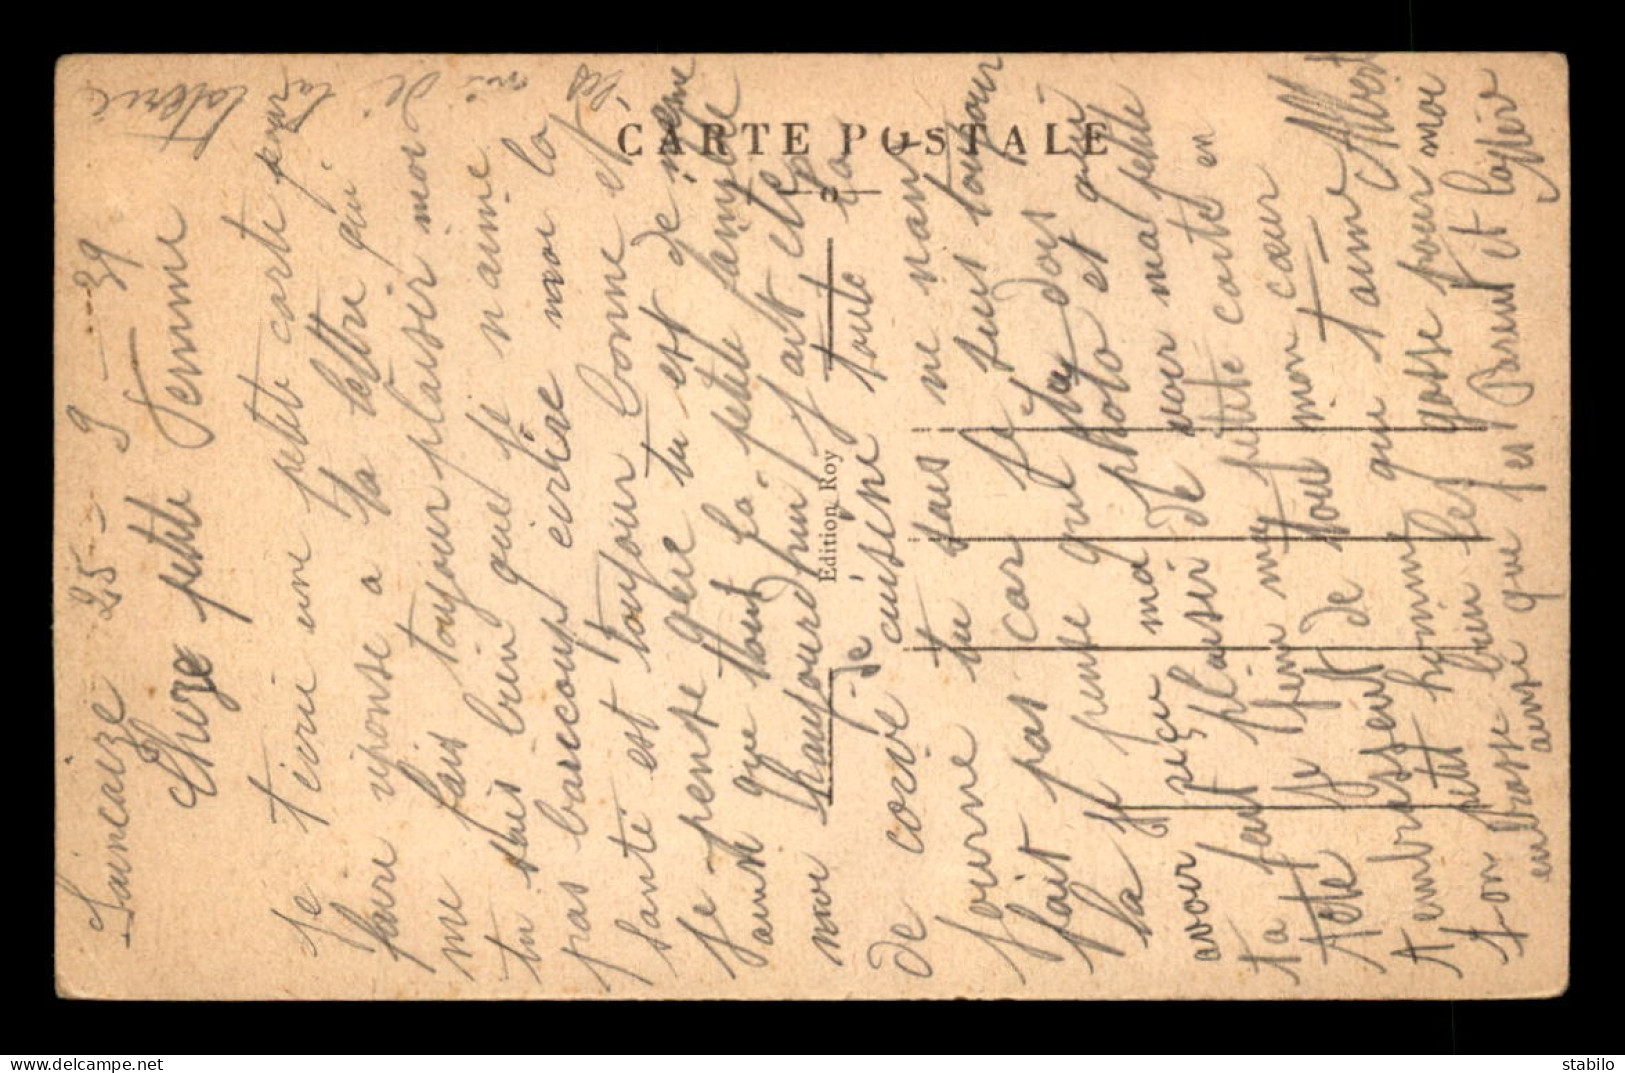 CARTE POSTALE
Edition Roy
Saincaize 25 - 9 - 39
Cherze petite Femme
Je t'ecri une petite carte pour
faire reponse a ta lettre qui
me fais toujour plaisir moi
tu sais bien que je n'aime
pas baucoup ecrire moi la
santé est toujour bonne et
Je pense que tu est de meme
ainsi que tout ta petite famille
moi haujourdhui J'ait eté
de corvé de cuisine toute la
journe tu sais ne man
fait pas car Je suis toujour
la Je pense que tu dois
avoir reçu ma photo et qu'il
ta fait plaisir de voir ma petite
tete Je fini ma petite carte en
t'embrassent de tout mon cœur
ton petit homme qui t'aime Albert
embrasse bien les gosse pour moi
ainsi que